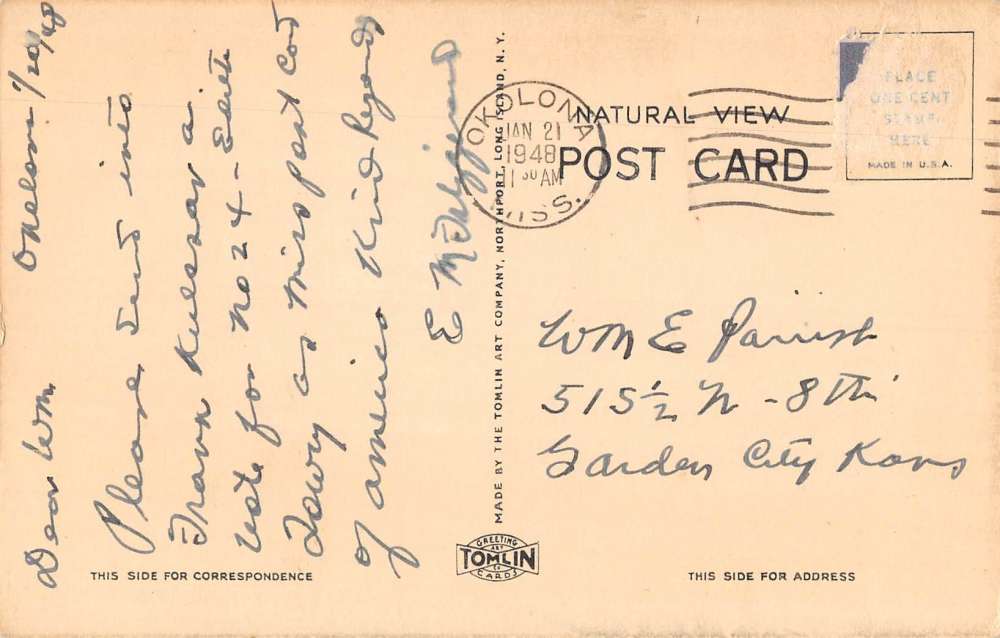 Dear Wm. Okolona 1/20/48
Please send into
Frank a
vote for No 24 - Edith
Lowry as Miss Post Card
of America Kind Regards
E
MADE BY THE TOMLIN ART COMPANY, NORTHPORT, LONG ISLAND, N. Y.
OKOLONA
JAN 21
1948
11 30 AM
MISS.
NATURAL VIEW
POST CARD
PLACE
ONE CENT
STAMP
HERE
MADE IN U.S.A.
Wm E Parrish
515½ N - 8th
Garden City Kans
GREETING
ART
TOMLIN
CO
CARDS
THIS SIDE FOR CORRESPONDENCE
THIS SIDE FOR ADDRESS